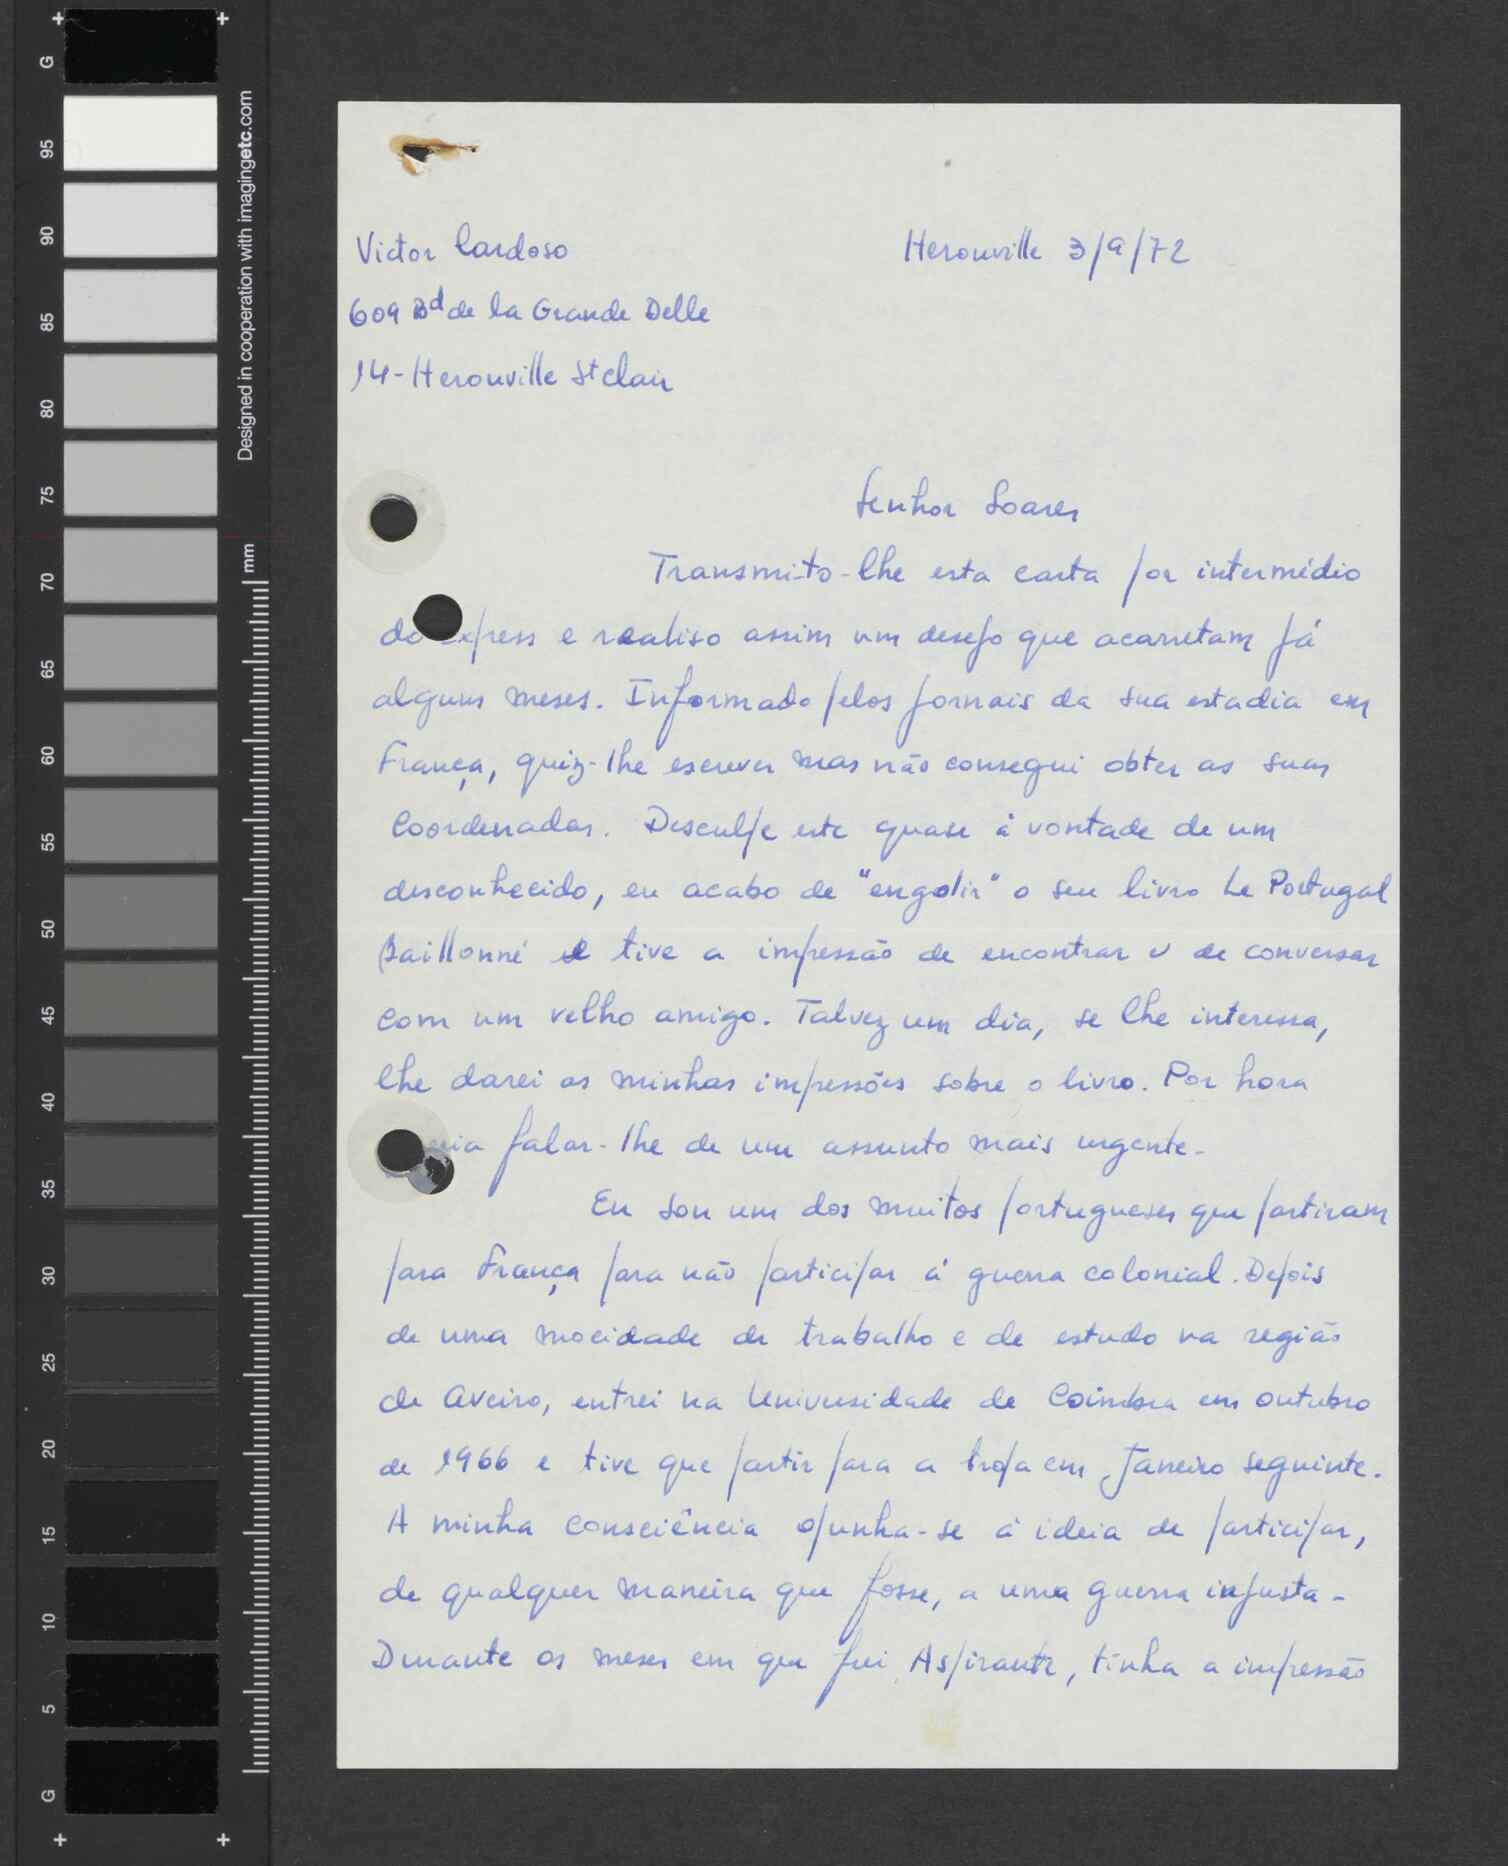 Victor Cardoso
Herouville 3/9/72
609 Bd de la Grande Delle
14-Herouville St clair
Senhor Soares
Transmito-lhe esta carta por intermédio
do express e realiso assim um desejo que acarretam já
alguns meses. Informado pelos jornais da sua estadia em
França, quiz-lhe escrever mas não consegui obter as suas
Coordenadas. Desculpe este quase á vontade de um
desconhecido, eu acabo de "engolir" o seu livro Le Portugal
Baillonné e tive a impressão de encontrar e de conversar
com um velho amigo. Talvez um dia, se lhe interessa,
lhe darei as minhas impressões sobre o livro. Por hora
falar-lhe de um assunto mais urgente.
Eu sou um dos muitos portugueses que partiram
para França para não participar á guerra colonial. Depois
de uma mocidade de trabalho e de estudo na região
de Aveiro, entrei na Universidade de Coimbra em outubro
de 1966 e tive que partir para a tropa em Janeiro seguinte.
A minha consciência opunha-se á ideia de participar,
de qualquer maneira que fosse, a uma guerra injusta.
Durante os meses em que fui Aspirante, tinha a impressão
G
95
90
85
80
75
70
65
60
55
50
45
40
35
30
25
20
15
10
5
G
Designed in cooperation with imagingetc.com
mm